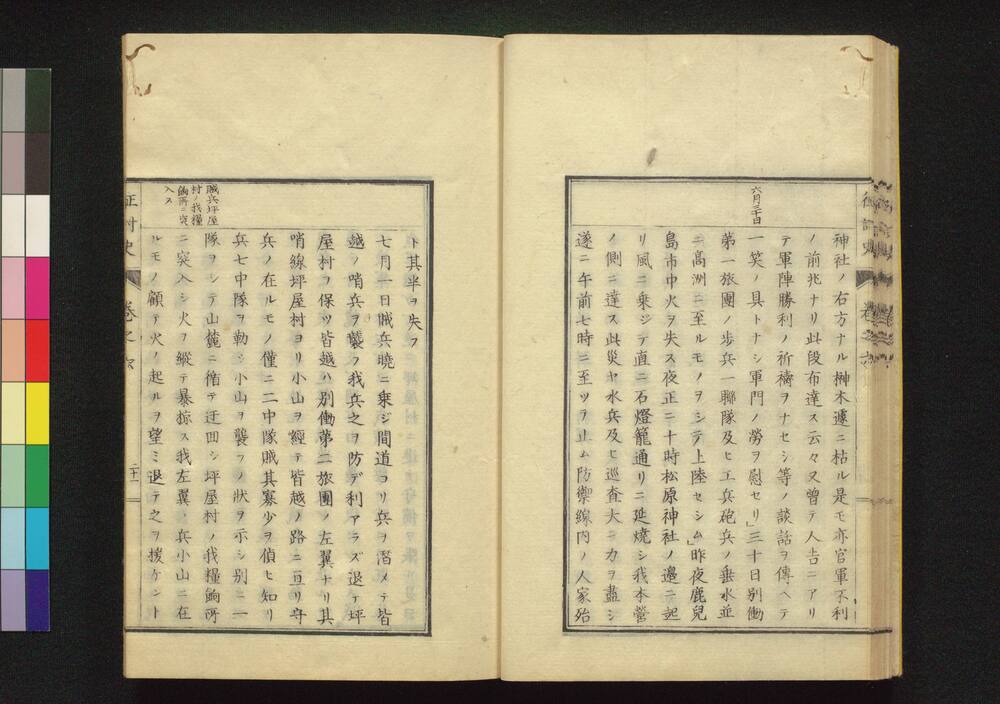 六月三十日
神社ノ右方ナル榊木遽ニ枯ル是モ亦官軍不利
ノ前兆ナリ此段布達ス云々又曾テ人吉ニアリ
テ軍陣勝利ノ祈禱ヲナセシ等ノ談話ヲ傳ヘテ
一笑ノ具トナシ軍門ノ勞ヲ慰セリ」三十日別働
第一旅團ノ歩兵一聯隊及ヒ工兵砲兵ノ垂水並
ニ高洲ニ至ルモノヲシテ上陸セシム」昨夜鹿兒
島市中火ヲ失ス夜正ニ十時松原神社ノ邊ニ起
リ風ニ乗ジテ直ニ石燈籠通リニ延燒シ我本營
ノ側ニ達ス此災ヤ水兵及ヒ巡査大ニカヲ盡シ
遂ニ午前七時ニ至ツヲ止ム防禦線内ノ人家殆
ト其半ヲ失フ
賊兵坪屋
村ノ我糧
餉所ニ突
入ス
七月一日賊兵曉ニ乗ジ間道ヨリ兵ヲ潛メテ皆
越ノ哨兵ヲ襲フ我兵之ヲ防デ利アラズ退テ坪
屋村ヲ保ツ皆越ハ別働第二旅團ノ左翼ナリ其
哨線坪屋村ヨリ小山ヲ經テ皆越ノ路ニ亘リ守
兵ノ在ルモノ僅ニ二中隊賊其寡少ヲ偵ヒ知リ
兵七中隊ヲ勒シ小山ヲ襲フノ狀ヲ示シ別ニ一
隊ヲシテ山麓ニ循テ迂回シ坪屋村ノ我糧餉所
ニ突入シ火ヲ縱テ暴掠ス我左翼ノ兵小山ニ在
ルモノ顧テ火ノ起ルヲ望ミ退テ之ヲ援ケント
征討史 卷之 二十一